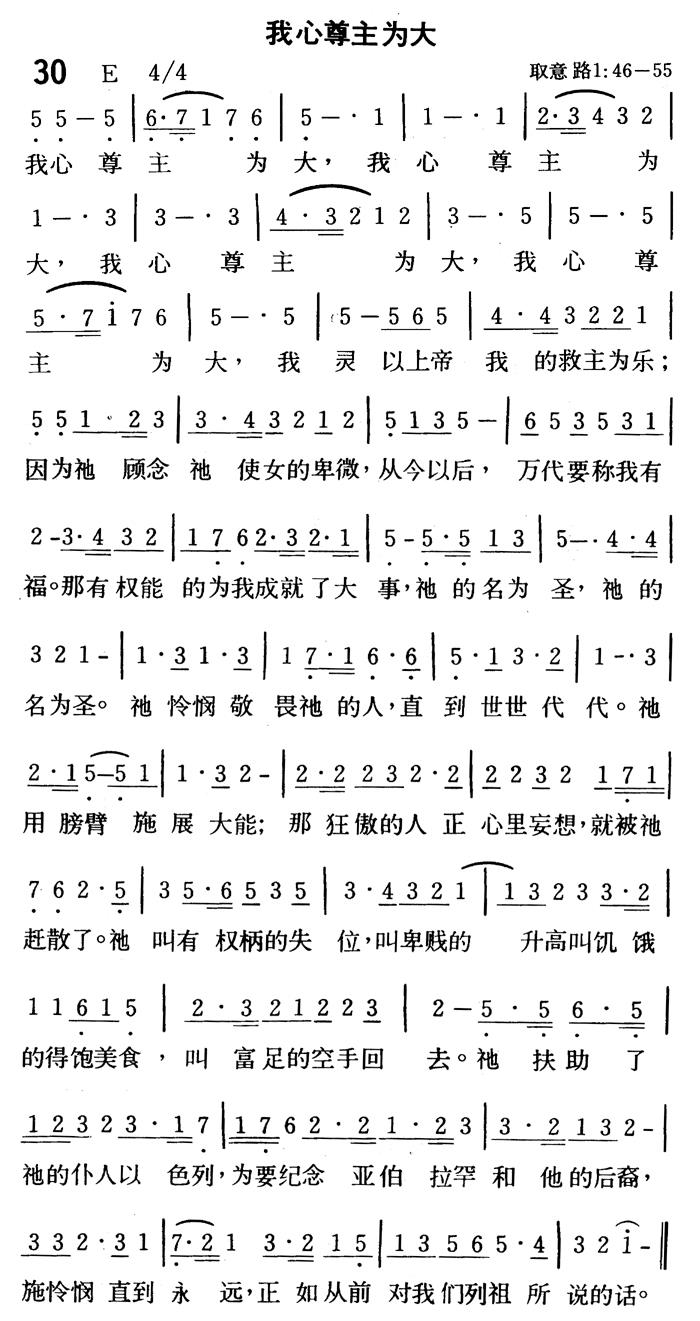 我心尊主为大
30 E 4/4 取意 路1:46—55
5 5 — 5 | 6·7 1 7 6 | 5 — · 1 | 1 — · 1 | 2·3 4 3 2 |
我心 尊 主 为 大, 我 心 尊 主 为
1 — · 3 | 3 — · 3 | 4·3 2 1 2 | 3 — · 5 | 5 — · 5 |
大, 我 心 尊 主 为 大, 我 心 尊
5·7 i 7 6 | 5 — · 5 | 5 — 5 6 5 | 4·4 3 2 2 1 |
主 为 大, 我 灵 以上帝 我 的救主为乐;
5 5 1 · 2 3 | 3·4 3 2 1 2 | 5 1 3 5 — | 6 5 3 5 3 1 |
因为祂 顾念 祂 使女的卑微,从今以后, 万代要称我有
2 - 3·4 3 2 | 1 7 6 2·3 2·1 | 5 - 5·5 1 3 | 5 — · 4·4 |
福。那有权能 的为我成就了大 事,祂 的 名为 圣, 祂 的
3 2 1 - | 1·3 1·3 | 1 7·1 6·6 | 5·1 3·2 | 1 - · 3 |
名为圣。 祂 怜悯 敬 畏祂 的人,直 到 世世 代 代。祂
2·1 5—5 1 | 1·3 2 - | 2·2 2 2 3 2·2 | 2 2 3 2 1 7 1 |
用 膀臂 施 展 大能; 那 狂傲的人 正 心里妄想,就被祂
7 6 2·5 | 3 5·6 5 3 5 | 3·4 3 2 1 | 1 3 2 3 3·2 |
赶散了。祂 叫有 权柄的失 位,叫卑贱的 升高叫饥 饿
1 1 6 1 5 | 2·3 2 1 2 2 3 | 2 — 5·5 6·5 |
的得饱美食,叫 富足的空手回 去。祂 扶助 了
1 2 3 2 3·1 7 | 1 7 6 2·2 1·2 3 | 3·2 1 3 2 - |
祂的仆人以 色列,为要纪念 亚伯 拉罕 和 他的后裔,
3 3 2·3 1 | 7·2 1 3·2 1 5 | 1 3 5 6 5 5·4 | 3 2 i - ‖
施怜悯 直到 永 远,正 如从前 对我们列祖 所 说的话。